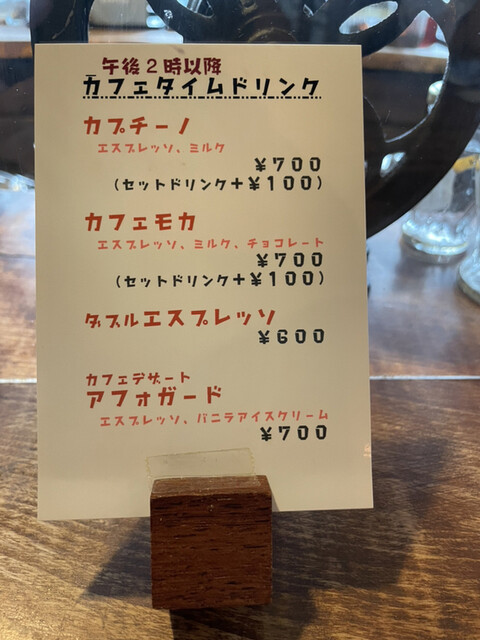 午後２時以降
カフェタイムドリンク
カプチーノ
エスプレッソ、ミルク
¥７００
(セットドリンク+¥１００)
カフェモカ
エスプレッソ、ミルク、チョコレート
¥７００
(セットドリンク+¥１００)
ダブルエスプレッソ
¥６００
カフェデザート
アフォガード
エスプレッソ、バニラアイスクリーム
¥７００